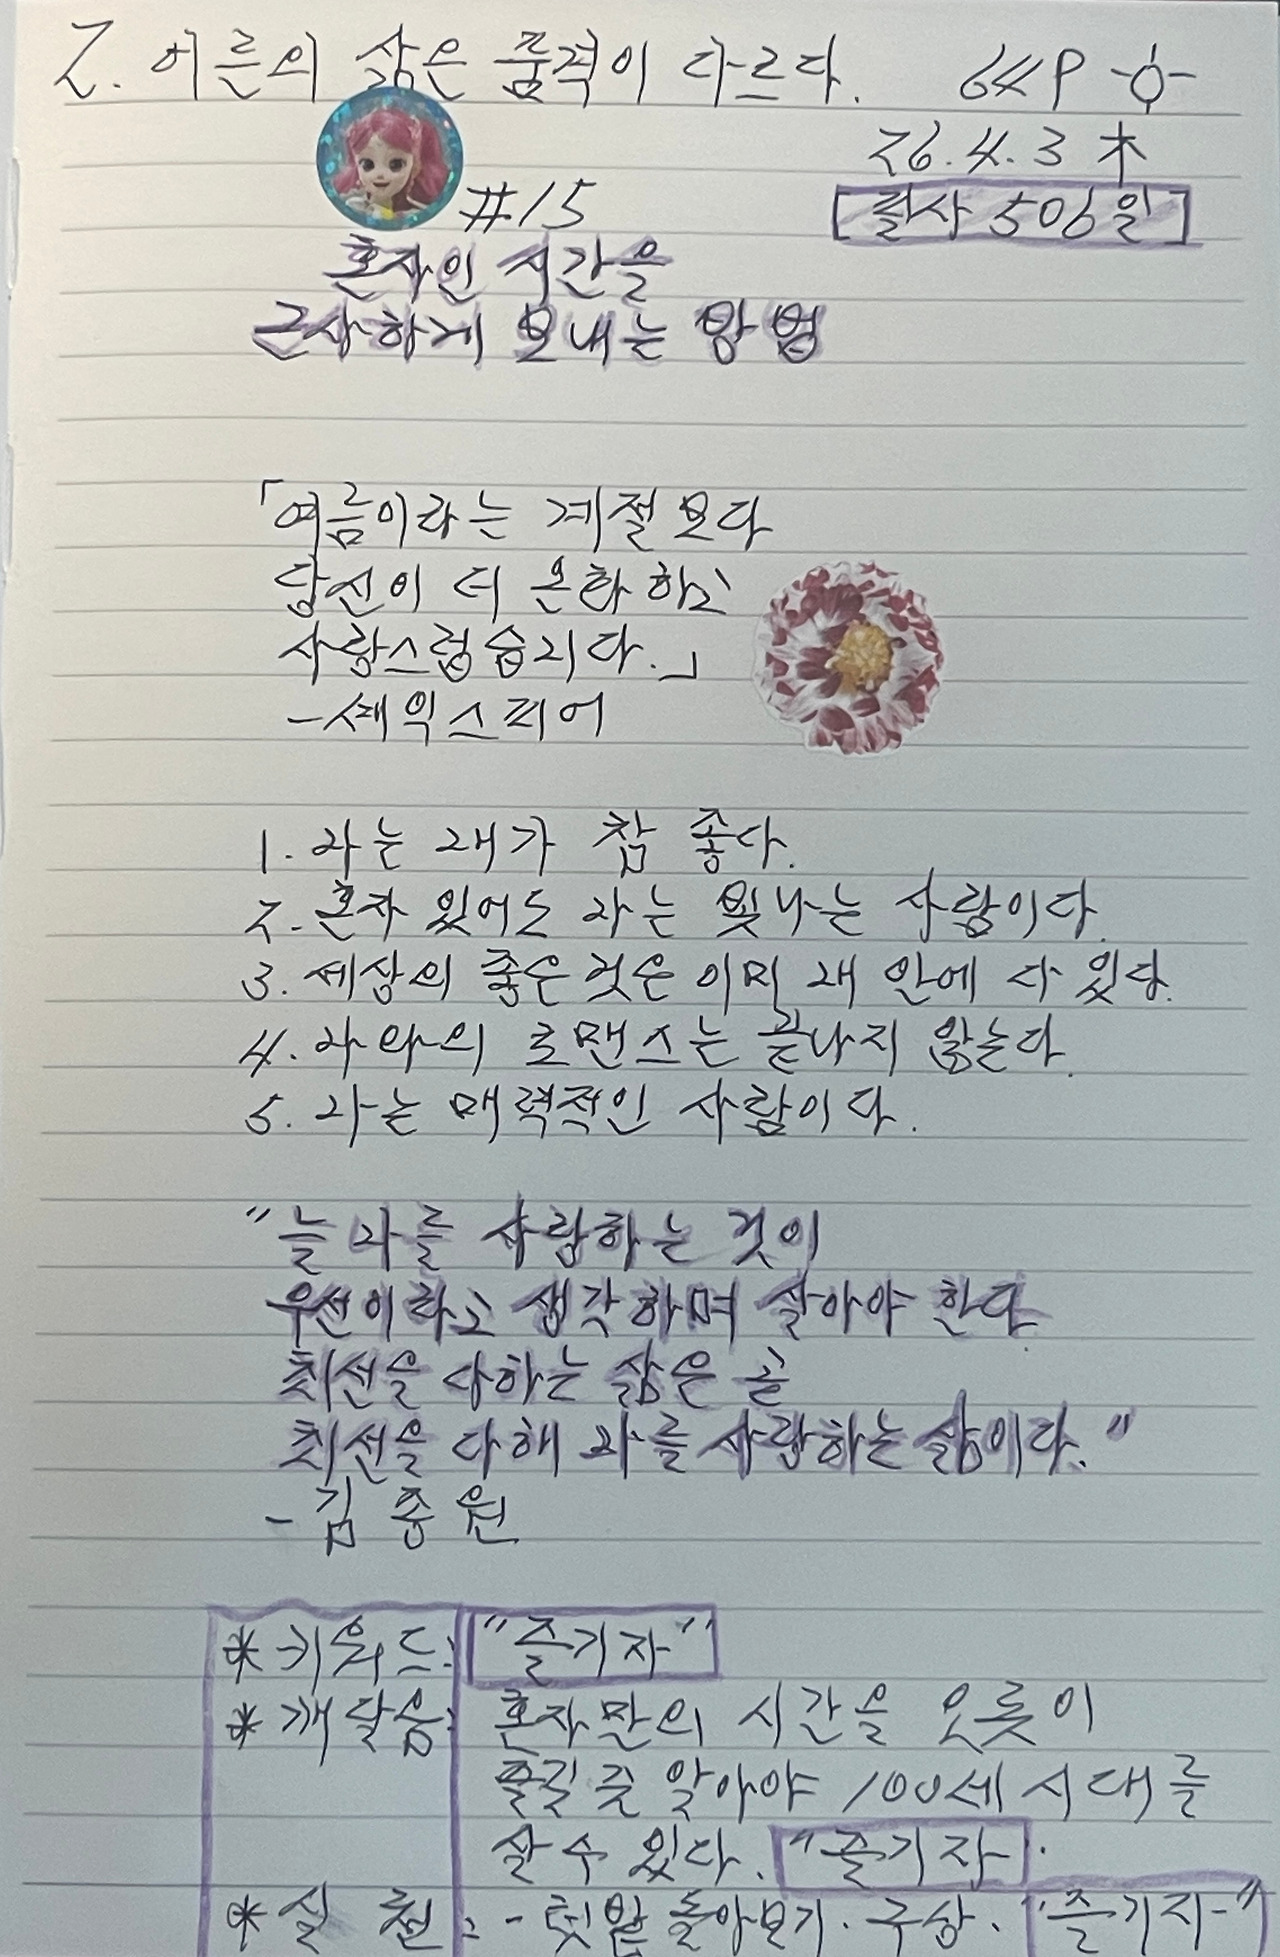 2. 어른의 삶은 품격이 다르다. 64P
26.4.3 木
#15 [필사 506일]
혼자인 시간을
근사하게 보내는 방법
「여름이라는 계절보다
당신이 더 온화하고
사랑스럽습니다.」
-셰익스피어
1. 나는 내가 참 좋다.
2. 혼자 있어도 나는 빛나는 사람이다.
3. 세상의 좋은 것은 이미 내 안에 다 있다.
4. 나와의 로맨스는 끝나지 않는다.
5. 나는 매력적인 사람이다.
"늘 나를 사랑하는 것이
우선이라고 생각하며 살아야 한다.
최선을 다하는 삶은 곧
최선을 다해 나를 사랑하는 삶이다."
-김종원
*키워드: "즐기자"
*깨달음: 혼자만의 시간을 오롯이
즐길 줄 알아야 100세 시대를
살 수 있다. "즐기자.
*실 천: -텃밭 돌아보기. 구상. "즐기자"